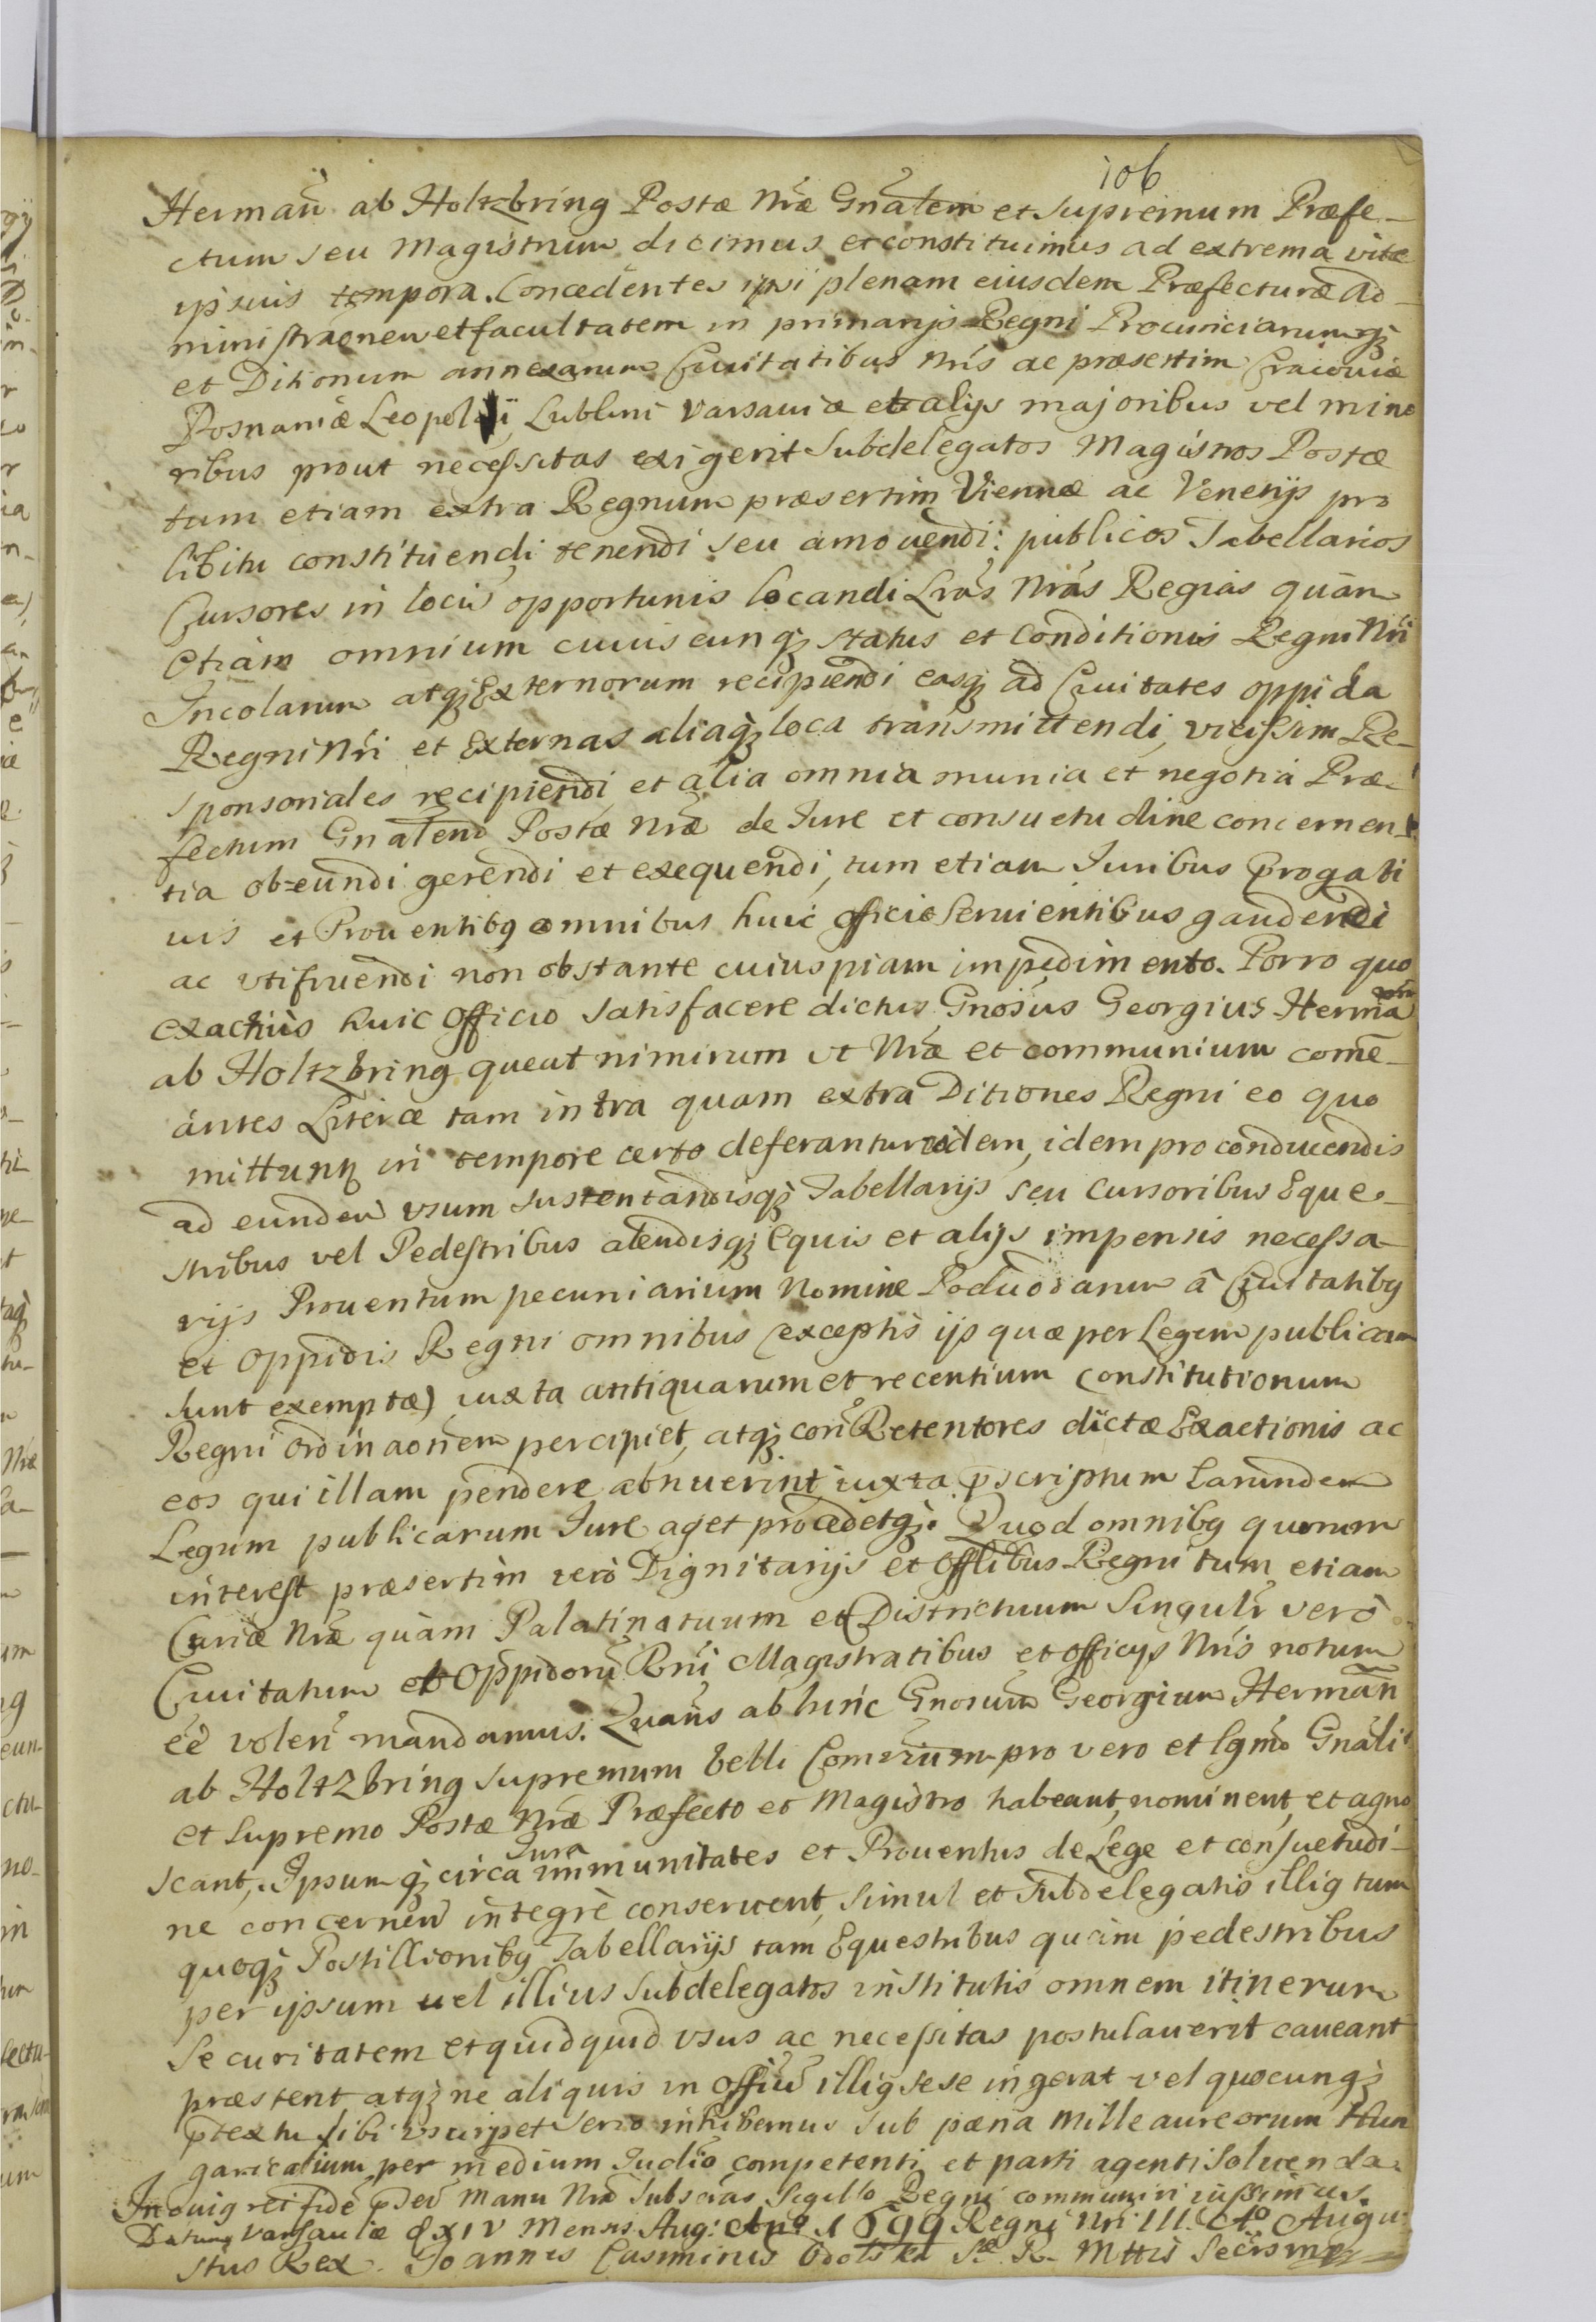 106
Hermañ ab Holtzbring Postæ Nræ Gnãlem et supremum Præfe-
ctum seu Magistrum dicimus et constituimus ad extrema vitæ
ipsius tempora. Concedentes ipsi plenam eiusdem Præfecturæ Ad-
ministrãonem et facultatem in primarijs Regni Prouinciarumqȝ
et Ditionum annexarum Ciuitatibus Nris ac præsertim Cracouiæ
Posnaniæ Leopoli Lublini Varsauiæ et alijs majoribus vel mino
ribus prout necessitas exigerit Subdelegatos Magistros Postæ
tum etiam extra Regnum præsertim Viennæ ac Venetijs pro
libitu constituendi tenendi seu amouendi: publicos Tabellarios
Cursores in locis opportunis locandi Lrãs Nrãs Regias quam
Etiam omnium cuiuscunqȝ status et Conditionis Regni Nri
Incolarum atqȝ Externorum recipiendi easqȝ ad Ciuitates oppida
Regni Nri et Externas aliaqȝ loca transmittendi, vicissim Re-
sponsoriales recipiendi et alia omnia munia et negotia Præ-
fectum Gnãlem Postæ Nræ de Jure et consuetudine concernen
tia obeundi gerendi et exequendi, tum etiam Juribus Prȩgati
uis et Prouentibȝ omnibus huic officio seruientibus gaudendi
ac vtifruendi non obstante cuiuspiam impedimento. Porro quo
exactius huic Officio satisfacere dictus Gnõsus Georgius Herma
ab Holtzbring queat nimirum vt Nræ et communium comẽ-
antes Literæ tam intra quam extra Ditiones Regni eo quo
mittuntȝ in tempore certo deferantur eidem, idem pro conducendis
ad eundem vsum sustentandisqȝ Tabellarijs seu Cursoribus Eque-
stribus vel Pedestribus alendisqȝ Equis et alijs impensis necessa-
rijs Prouentum pecuniarium Nomine Podwodarum â Ciuitatibȝ
et Oppidis Regni omnibus (exceptis ijs quæ per Legem publicam
sunt exemptæ) iuxta antiquarum et recentium Constitutionum
Regni Ordinaonem percipiet, atqȝ cori Retentores dictæ Exactionis ac
eos qui illam pendere abnuerint iuxta pscriptum Earundem
Legum publicarum Jure aget procedetqȝ. Quod omnibȝ quorum
interest præsertim vero Dignitarijs et Offlibus Regni tum etiam
Curiæ Nræ quàm Palatinatuum et Districtuum Singulr verò
Ciuitatum et Oppidorũ Rni Magistratibus et Officijs Nris notum
ẽe voleñ mandamus. Quatñs ab hinc Gnosum Georgium Hermañ
ab Holtzbring supremum belli Comrium pro vero et lgmo Gnãli
et Supremo Postæ Nræ Præfecto et Magistro habeant, nominent, et agno
scant, Ipsumqȝ circa Jura immunitates et Prouentus de Lege et consuetudi-
ne concerneñ integrè conseruent, simul et subdelegatis illiȝ tum
quoqȝ Postillionibȝ Tabellarijs tam Equestribus quàm pedestribus
per ipsum uel illius subdelegatos institutis omnem itinerum
securitatem et quidquid vsus ac necessitas postulauerit caueant
præstent, atqȝ ne aliquis in Offiũ illiȝ sese ingerat vel quocunqȝ
ptextu sibi vsurpet serio inhibemus sub pœna mille aureorum Hun
garicalium per medium Judiô competenti et parti agenti soluenda.
In cuiȝ rei fidẽ Manu Nra Subscras Sigillo Regni communiri iussimus.
Datum Varsauiæ d XIV Mensis Aug: Anº 1699 Regni Nri III. Aº Augu-
stus Rex. Joannes Casimirus Sæ R. Mttis Secrs mpr